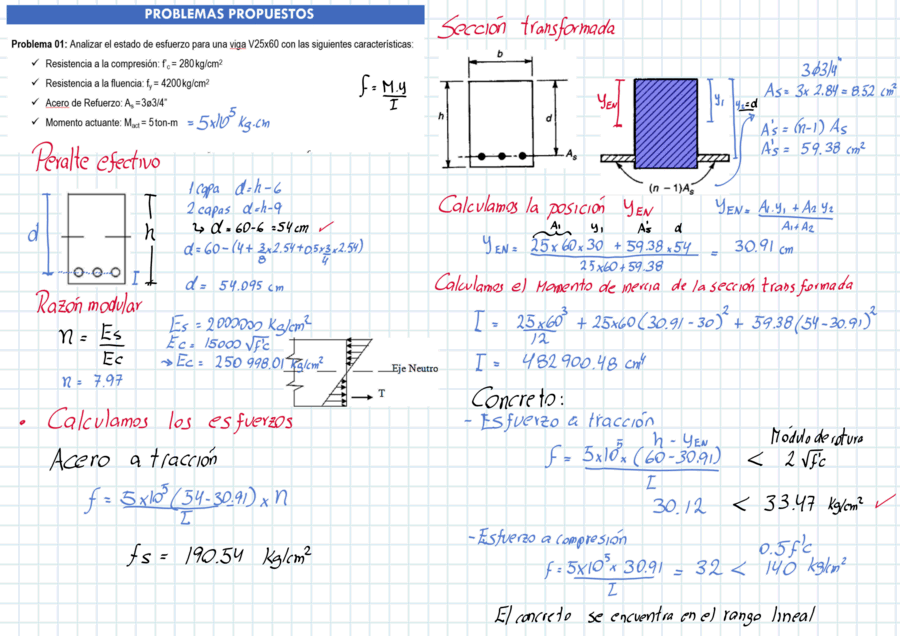 PROBLEMAS PROPUESTOS
Problema 01: Analizar el estado de esfuerzo para una viga V25x60 con las siguientes características:
✓ Resistencia a la compresión: f'c = 280 kg/cm²
✓ Resistencia a la fluencia: fy = 4200 kg/cm²
✓ Acero de Refuerzo: As =3ø3/4"
✓ Momento actuante: Mact = 5 ton-m = 5x10⁵ kg-cm
f = M.y / I
Peralte efectivo
d
h
I
1 capa d=h-6
2 capas d=h-9
↳ d = 60-6 = 54 cm ✓
d = 60-(4+ 3/8 x 2.54 + 0.5 x 3/4 x 2.54)
d = 54.095 cm
Razón modular
n = Es / Ec
n = 7.97
Es = 2000000 Kg/cm²
Ec = 15000 √f'c
→ Ec = 250 998.01 Kg/cm²
Eje Neutro
T
• Calculamos los esfuerzos
Acero a tracción
f = 5x10⁵ (54-30.91) x n / I
fs = 190.54 Kg/cm²
Sección transformada
b
h
d
As
YEN
y₁
y₂=d
(n − 1)As
3ø3/4"
As = 3x 2.84 = 8.52 cm²
A's = (n-1) As
A's = 59.38 cm²
Calculamos la posición YEN
YEN = A₁.y₁ + A₂ y₂ / A₁+A₂
A₁ y₁ A's d
YEN = 25x60x30 + 59.38x54 / 25x60+59.38 = 30.91 cm
Calculamos el Momento de inercia de la sección transformada
I = 25x60³/12 + 25x60(30.91-30)² + 59.38(54-30.91)²
I = 482900.48 cm⁴
Concreto:
- Esfuerzo a tracción
h - YEN
Módulo de rotura
f = 5x10⁵x (60-30.91) / I < 2√f'c
30.12 < 33.47 kg/cm² ✓
- Esfuerzo a compresión
0.5f'c
f = 5x10⁵x 30.91 / I = 32 < 140 kg/cm²
El concreto se encuentra en el rango lineal